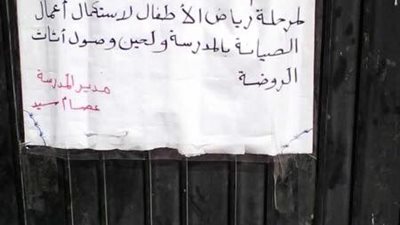 لمرحلة رياض الأطفال لاستكمال أعمال
الصيانة بالمدرسة ولحين وصول أثاث
الروضة
مدير المدرسة
عصام سيد